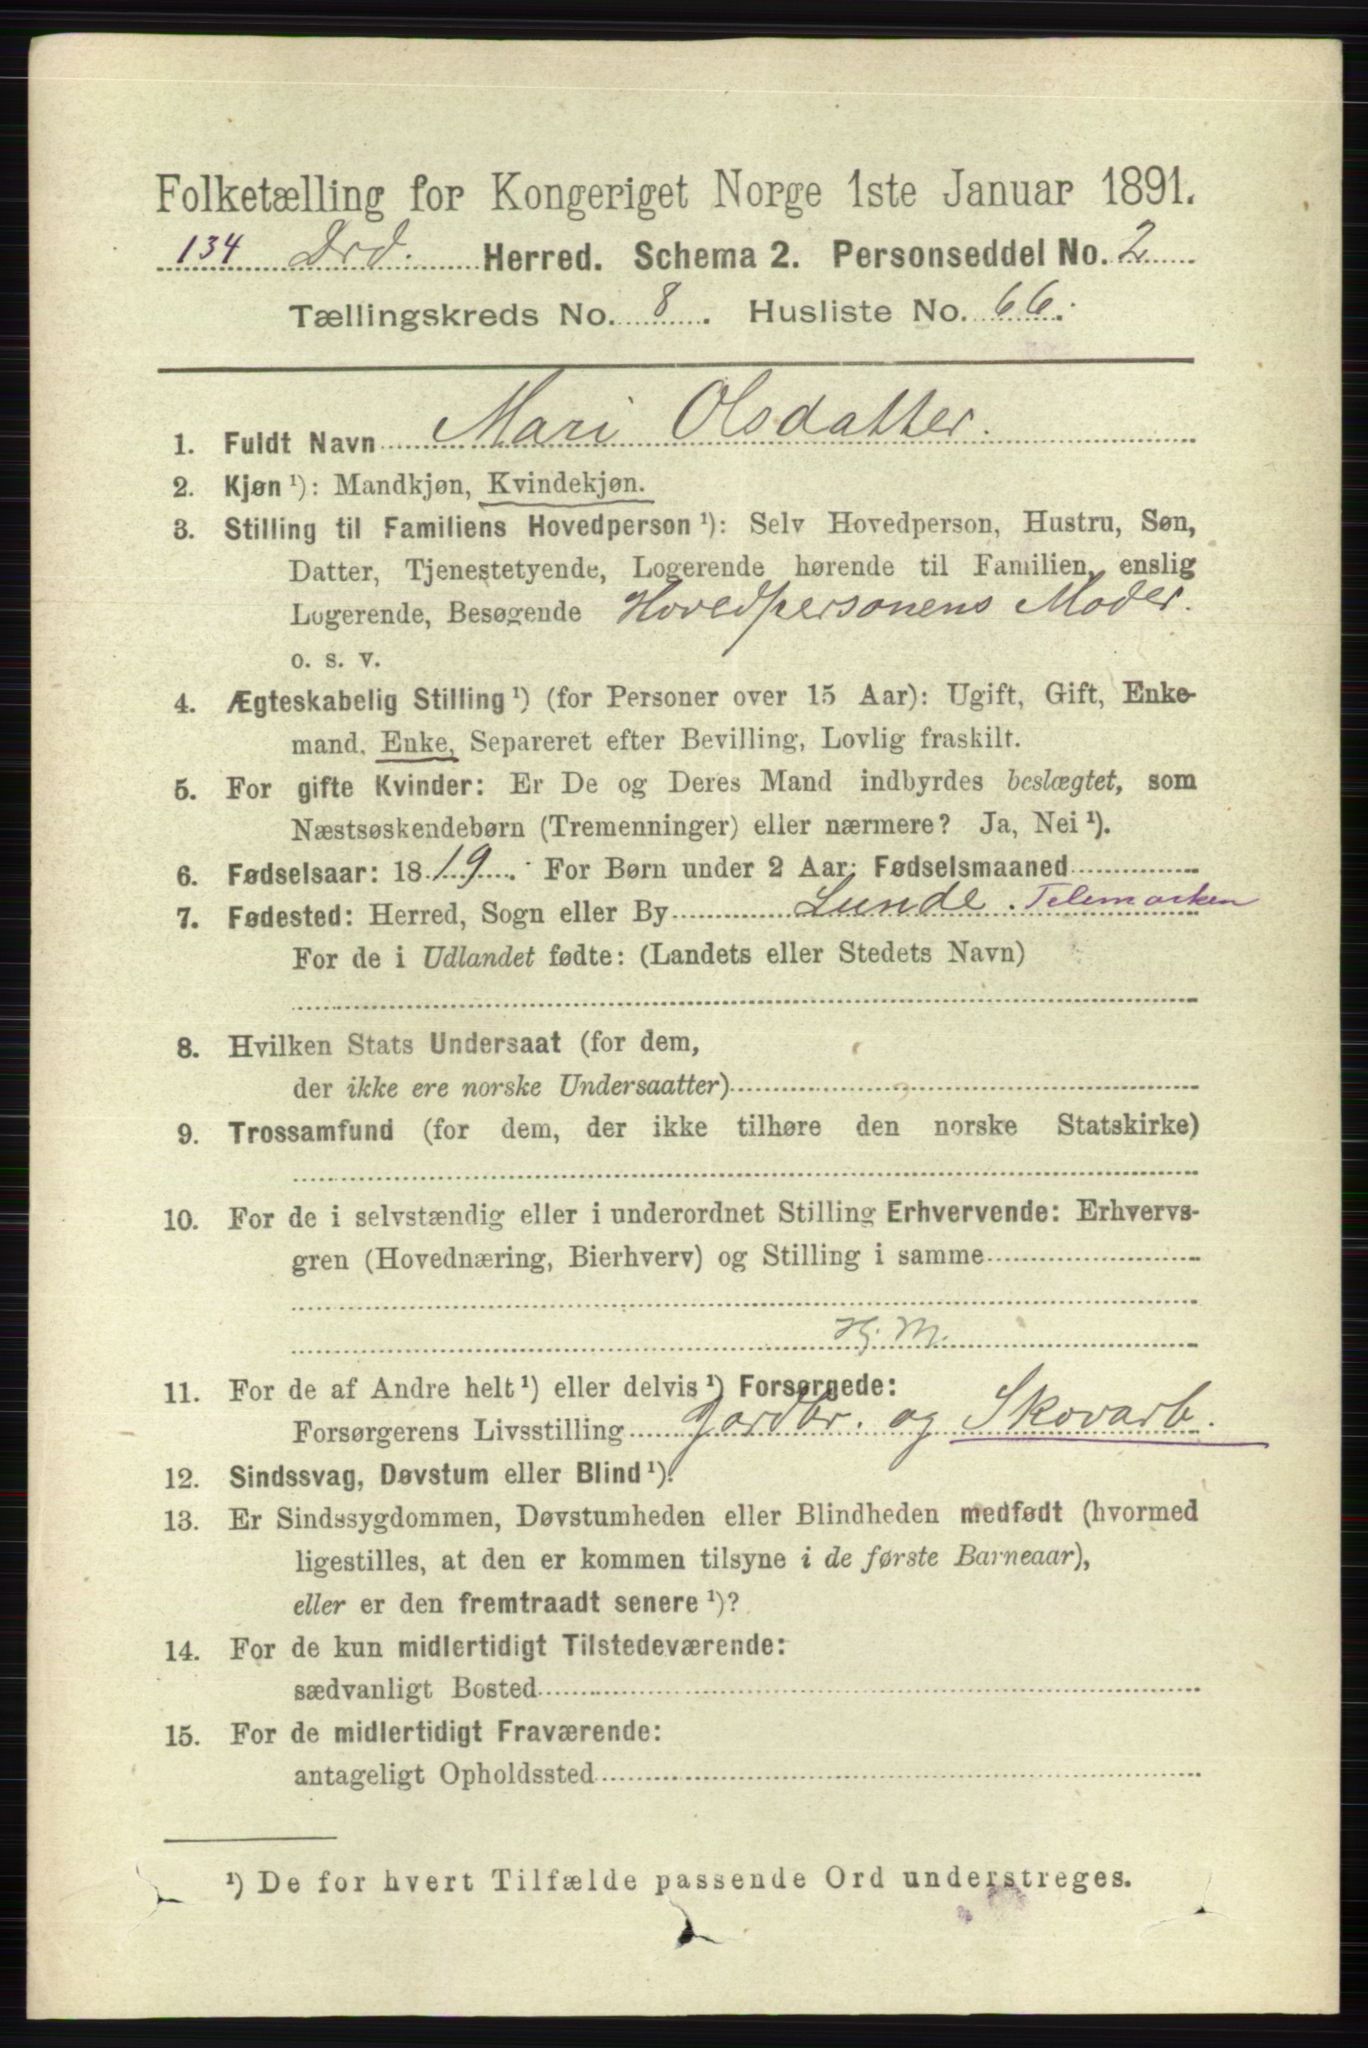 Folketælling for Kongeriget Norge 1ste Januar 1891.
134 Drd. Herred. Schema 2. Personseddel No. 2
Tællingskreds No. 8. Husliste No. 66.
1. Fuldt Navn Mari Olsdatter.
2. Kjøn ¹): Mandkjøn, Kvindekjøn.
3. Stilling til Familiens Hovedperson ¹): Selv Hovedperson, Hustru, Søn,
Datter, Tjenestetyende, Logerende hørende til Familien, enslig
Logerende, Besøgende Hovedpersonens Moder.
o. s. v.
4. Ægteskabelig Stilling ¹) (for Personer over 15 Aar): Ugift, Gift, Enke-
mand, Enke, Separeret efter Bevilling, Lovlig fraskilt.
5. For gifte Kvinder: Er De og Deres Mand indbyrdes beslægtet, som
Næstsøskendebørn (Tremenninger) eller nærmere? Ja, Nei ¹).
6. Fødselsaar: 1819. For Børn under 2 Aar: Fødselsmaaned
7. Fødested: Herred, Sogn eller By Lunde. Telemarken
For de i Udlandet fødte: (Landets eller Stedets Navn)
8. Hvilken Stats Undersaat (for dem,
der ikke ere norske Undersaatter)
9. Trossamfund (for dem, der ikke tilhøre den norske Statskirke)
10. For de i selvstændig eller i underordnet Stilling Erhvervende: Erhvervs-
gren (Hovednæring, Bierhverv) og Stilling i samme
Hj. M.
11. For de af Andre helt ¹) eller delvis ¹) Forsørgede:
Forsørgerens Livsstilling Jordbr. og Skovarb.
12. Sindssvag, Døvstum eller Blind ¹).
13. Er Sindssygdommen, Døvstumheden eller Blindheden medfødt (hvormed
ligestilles, at den er kommen tilsyne i de første Barneaar),
eller er den fremtraadt senere ¹)?
14. For de kun midlertidigt Tilstedeværende:
sædvanligt Bosted
15. For de midlertidigt Fraværende:
antageligt Opholdssted
¹) De for hvert Tilfælde passende Ord understreges.